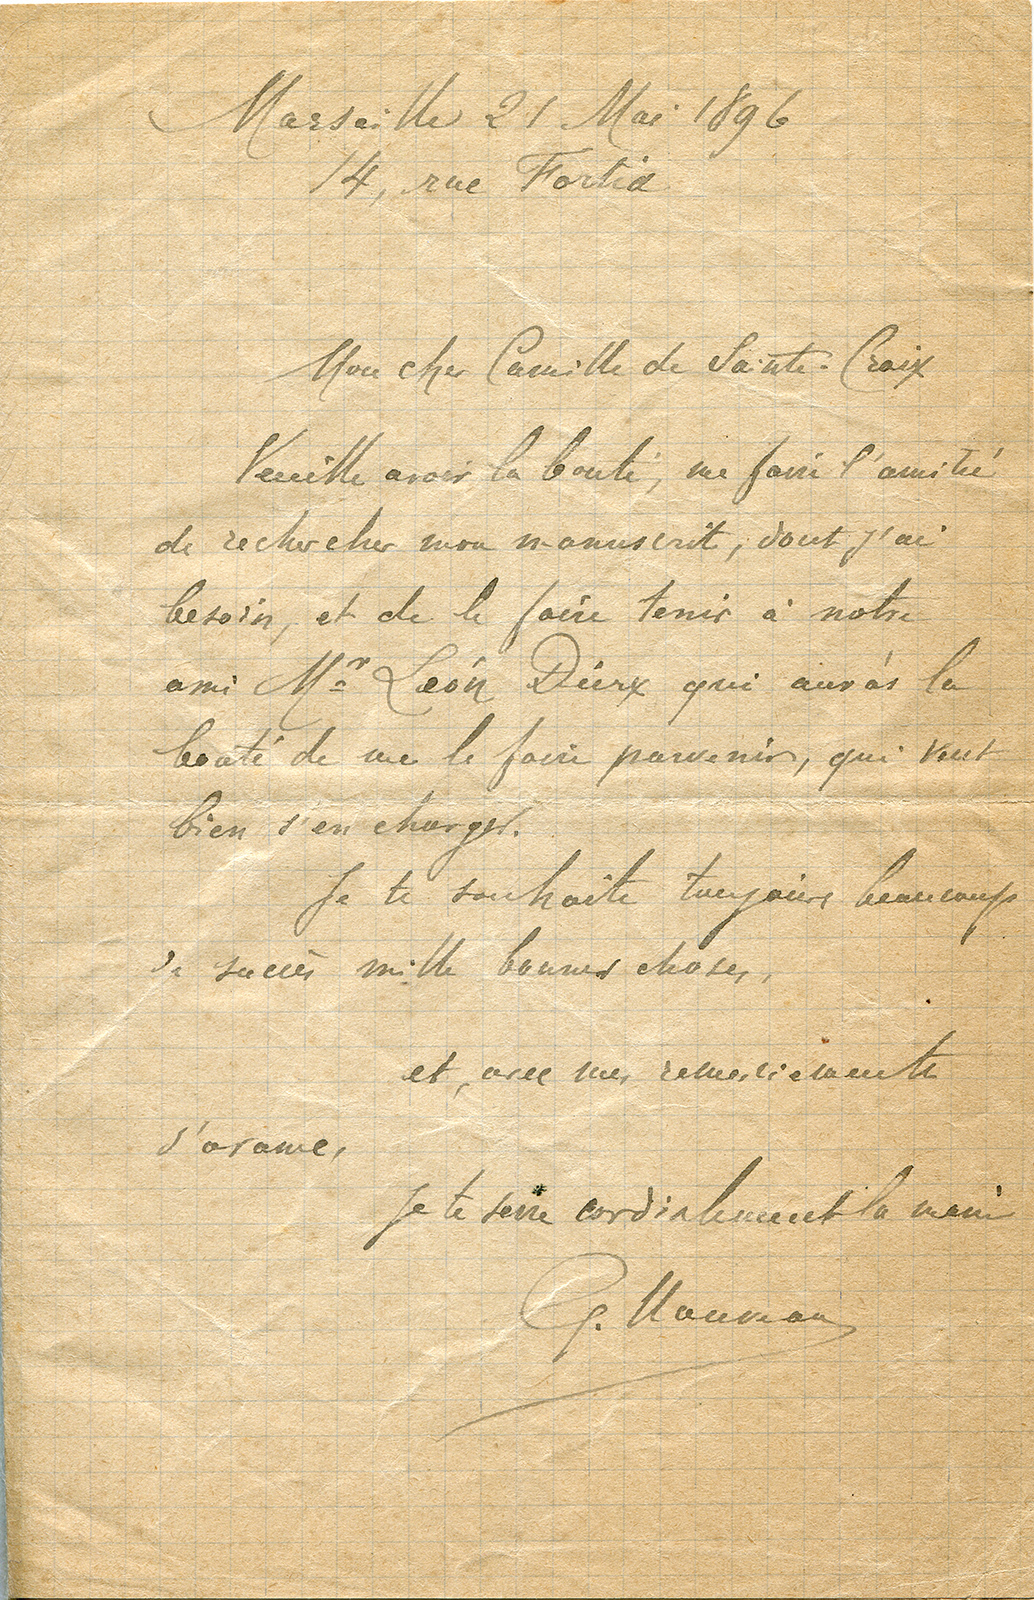 Marseille 21 Mai 1896
14, rue Fortia
Mon cher Camille de Sainte-Croix
Veuille avoir la bonté, me faire l'amitié
de rechercher mon manuscrit, dont j'ai
besoin, et de le faire tenir à notre
ami Mr Léon Dierx qui aura la
bonté de me le faire parvenir, qui veut
bien s'en charger.
Je te souhaite toujours beaucoup
de succès mille bonnes choses,
et, avec mes remerciements
d'avance,
Je te serre cordialement la main
G. Nouveau